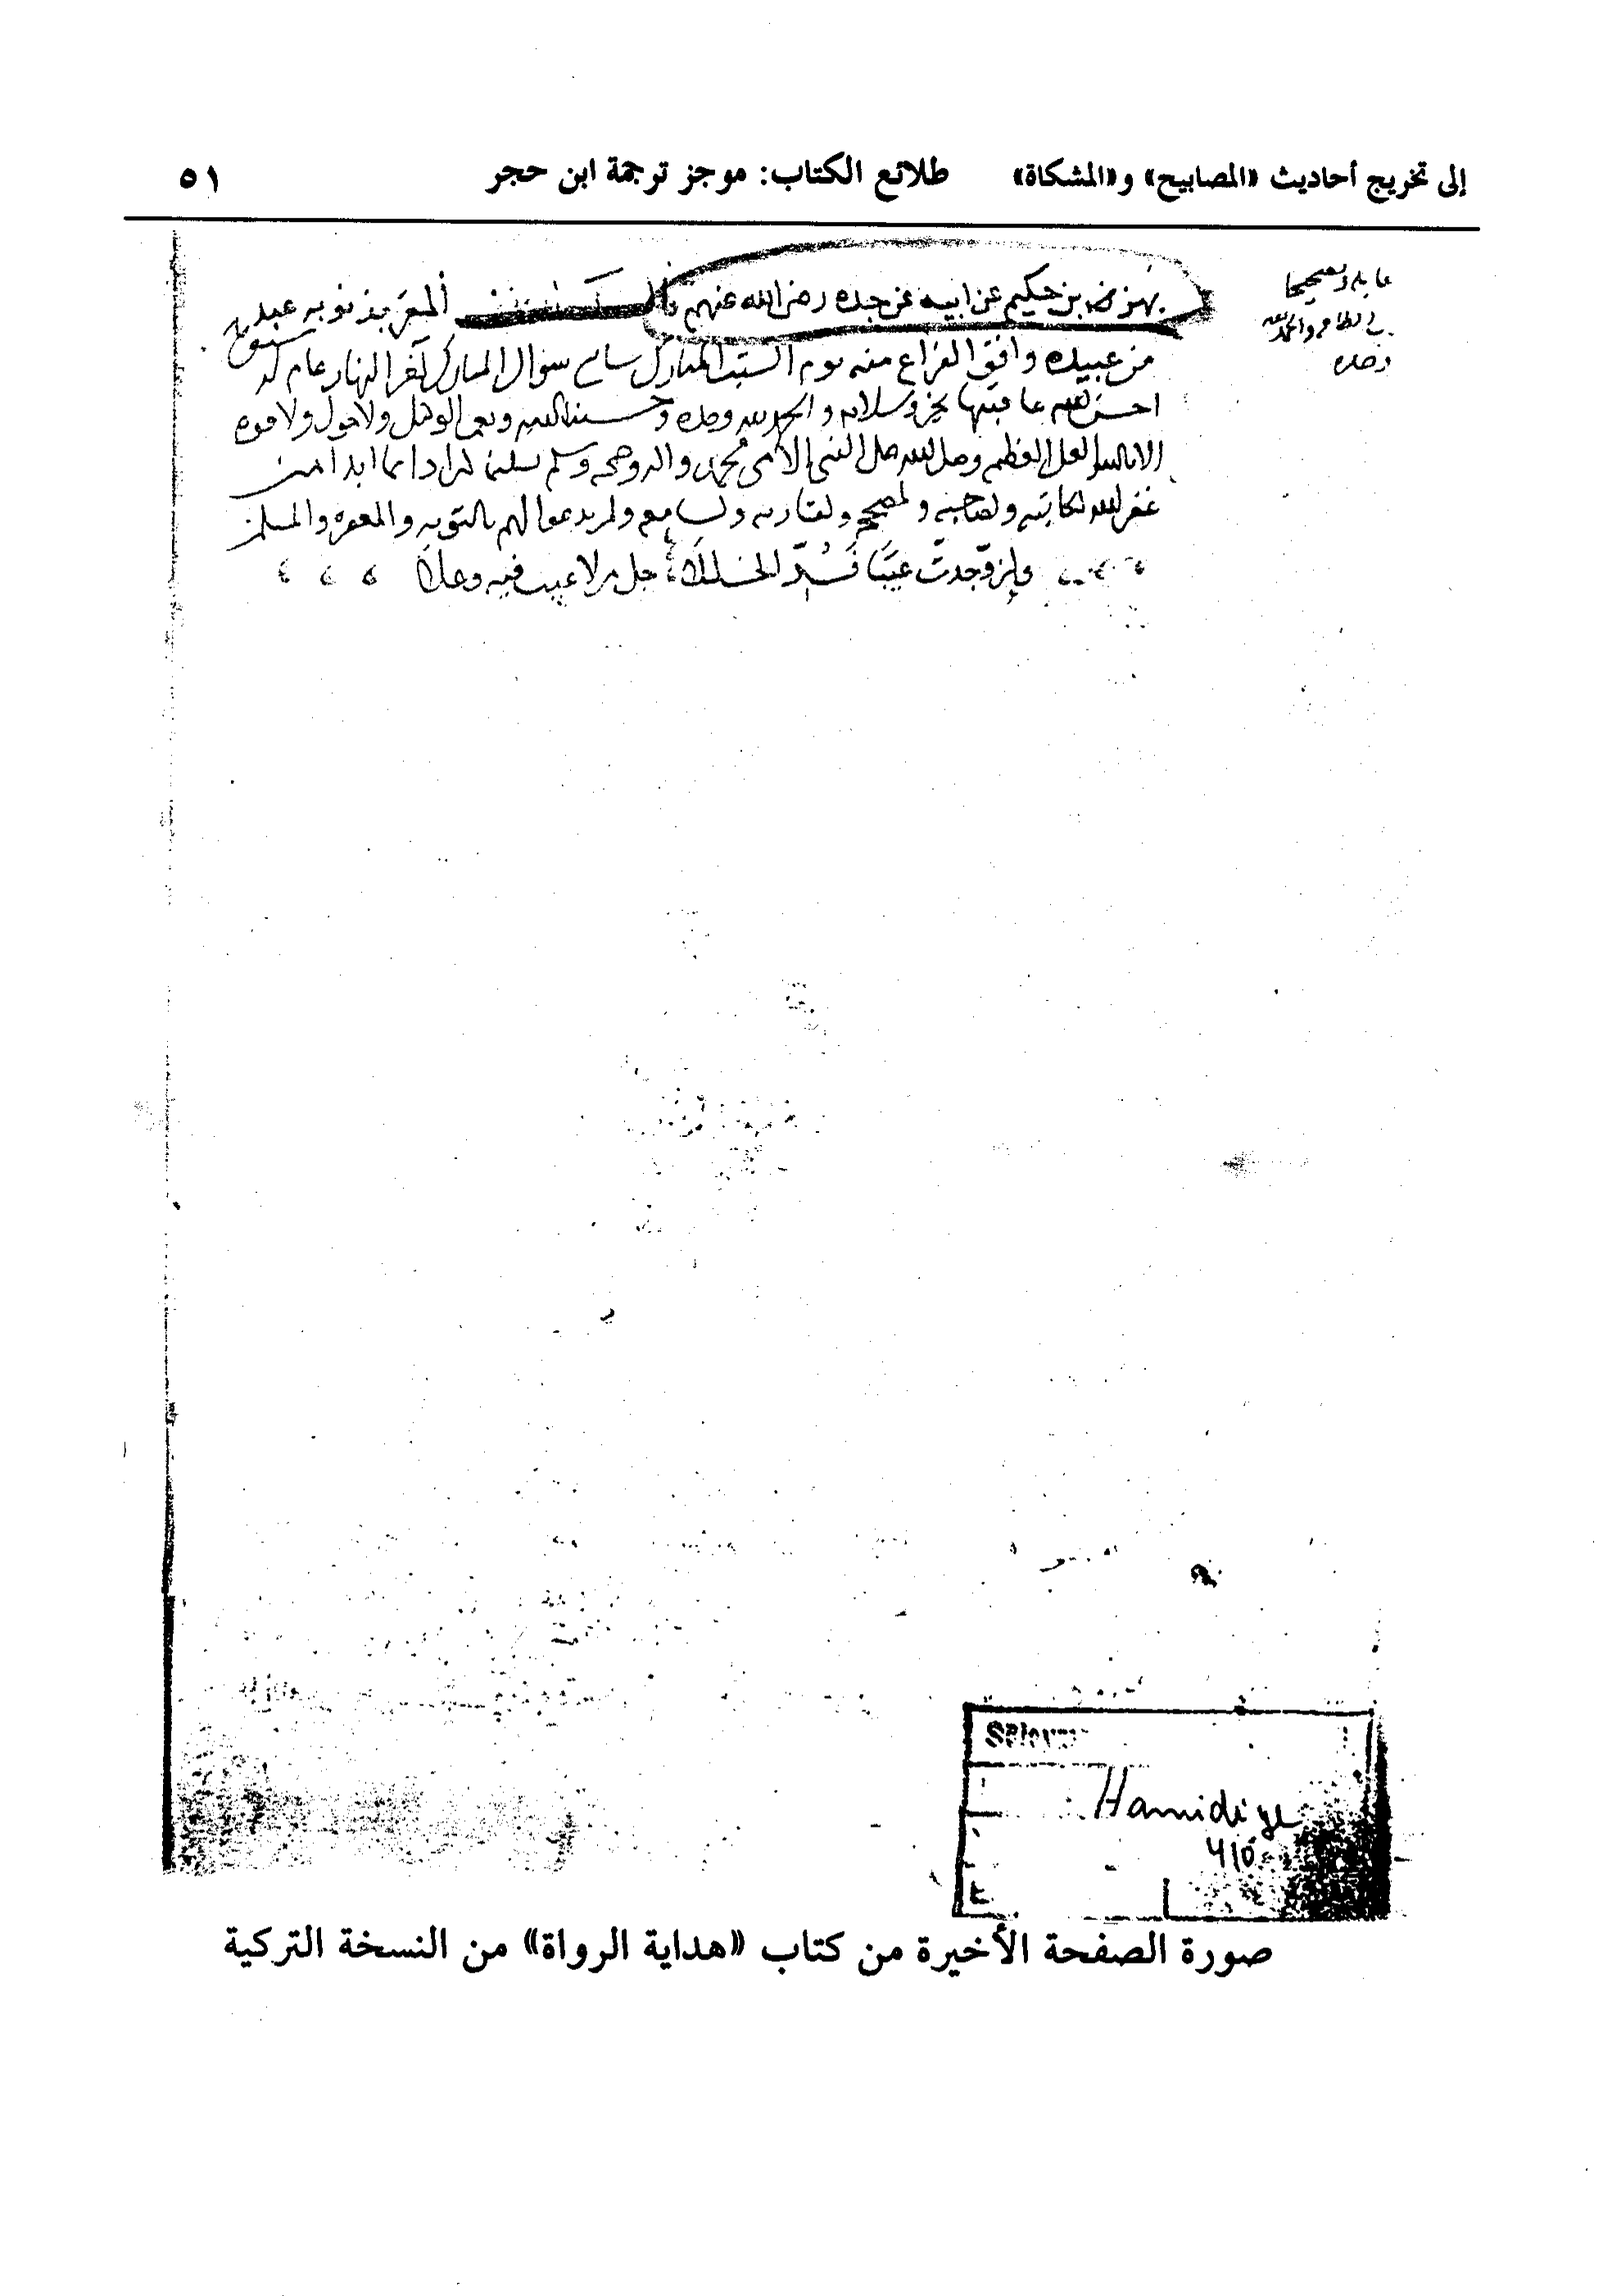 إلى تخريج أحاديث «المصابيح» و«المشكاة» طلائع الكتاب: موجز ترجمة ابن حجر ٥١
بهز بن حكيم عن ابيه عن جده رضي الله عنهم قال المعترف بذنوبه عبد
من عبيده وافق الفراغ منه يوم السبت المبارك شوال المبارك آخر النهار عام
احسن الله عاقبتها بخير وسلامه والحمد لله وحده وحسبنا الله ونعم الوكيل ولا حول ولا قوه
الا بالله العلي العظيم وصلى الله على النبي الأمي محمد واله وصحبه وسلم تسليما كثيرا دائما ابدا امين
غفر الله لكاتبه ولصاحبه ولمصححه ولقارئه ولسامعه ولمن يدعو لهم بالتوبه والمغفره والمسلمين
وإن وجدت عيبا فسد الخللا جل من لا عيب فيه وعلا
في الظاهر والحمد لله
وحده
Hamidiye
410
صورة الصفحة الأخيرة من كتاب «هداية الرواة» من النسخة التركية